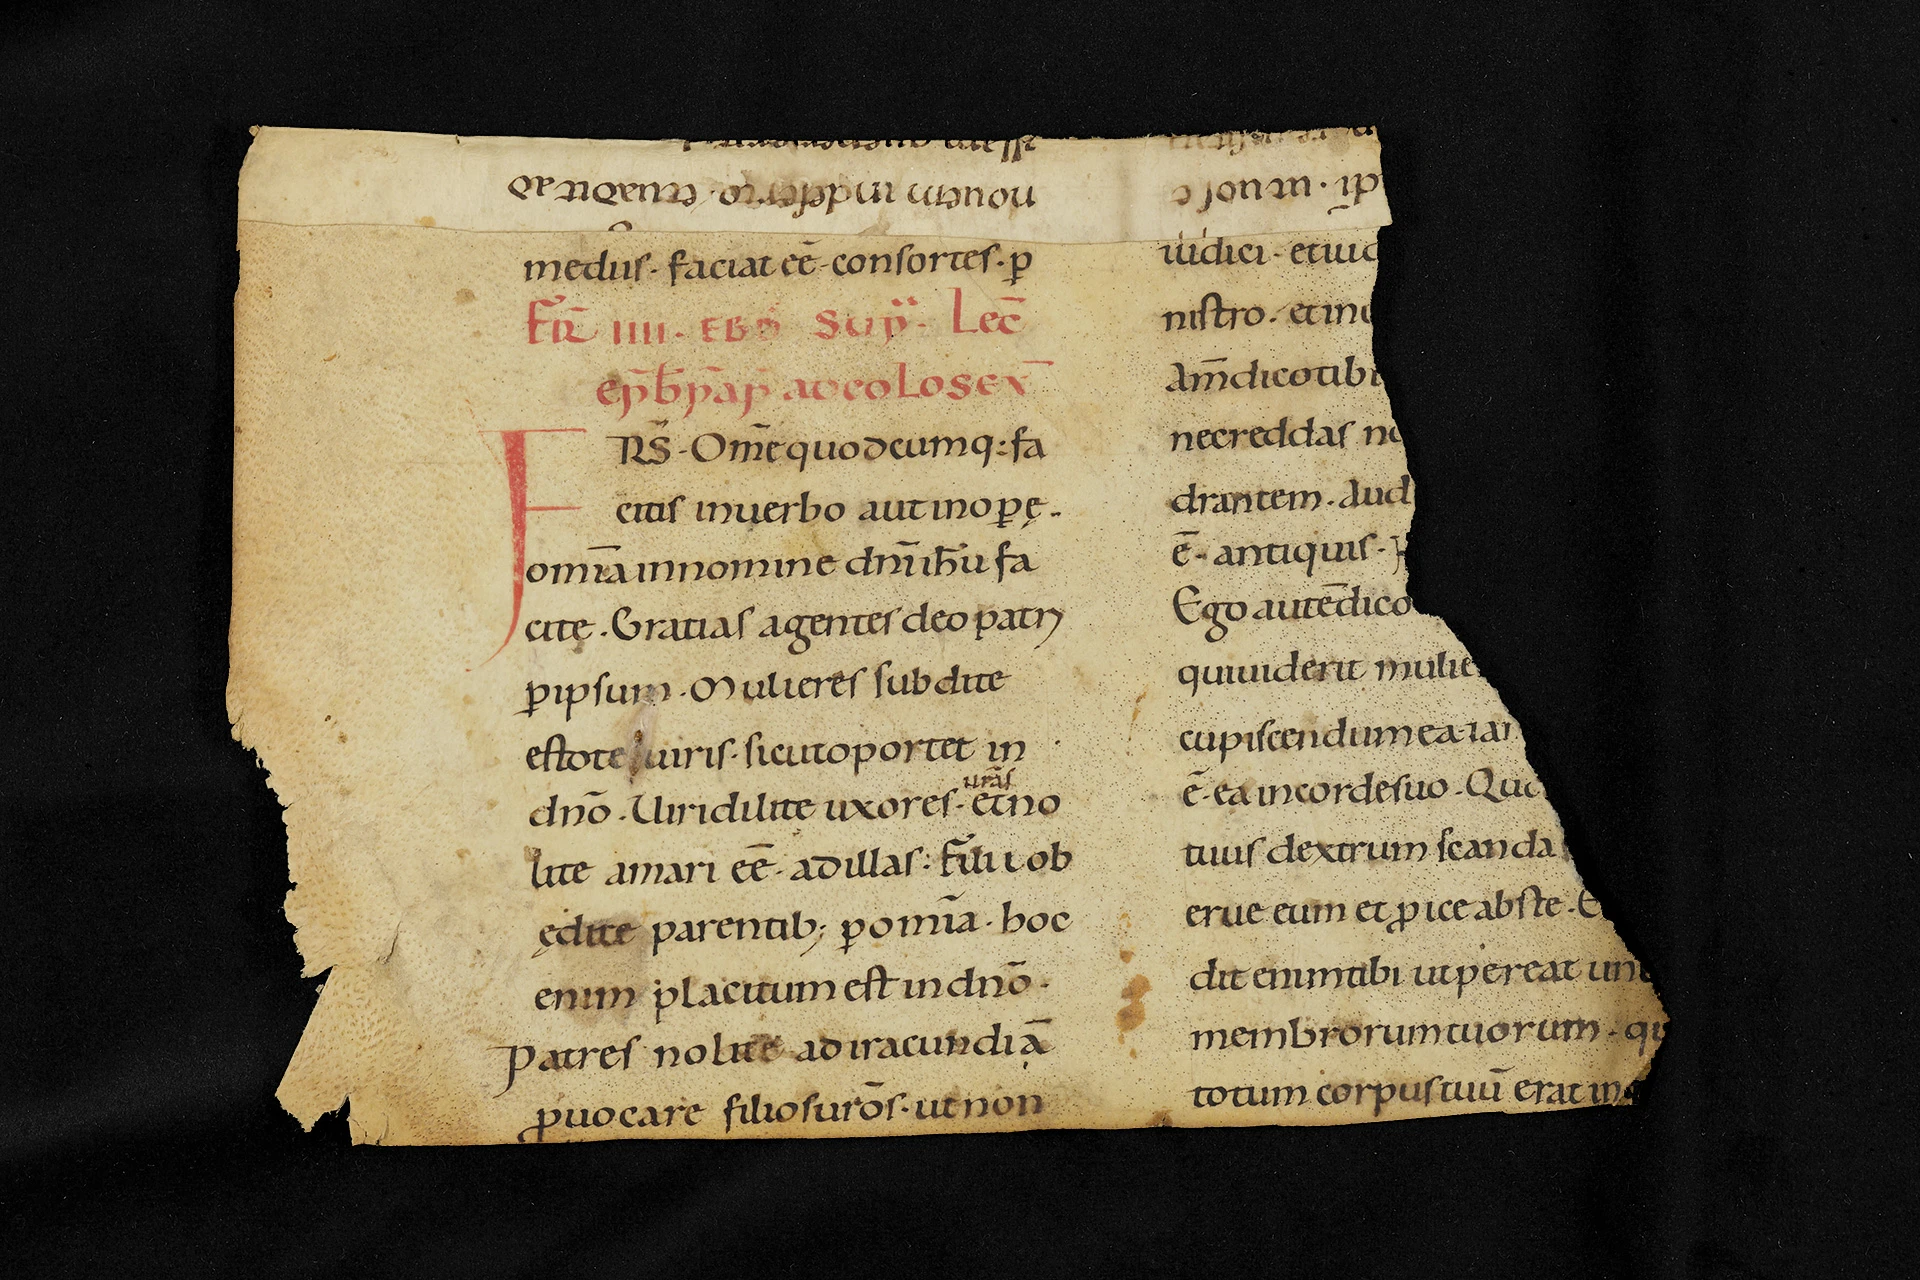 nouem indeserto. etuadit ad
medus. faciat eē. consortes. ꝑ
Fr̄ IIII. EBD Lec̄
epƀ pap ad coLosex̄
FRS̄. Om̄e quodcumq: fa
citis inuerbo aut inopę.
omīa innomine dn̄i ih̄u fa
citę. Gratias agentes deo patri
ꝑ ipsum. Mulieres subdite
estote uiris. sicutoportet in
dnō. Uiri dilite uxores. ur̄ās et no
lite amari eē. ad illas: Filii ob
ędite parentib; ꝑ omīa. hoc
enim placitum est in dnō.
Patres nolite ad iracundiā
ꝓuocare filios ur̄ōs. ut non
iudici. et iud
nistro. et inc
Am̄ dico tibi
nec reddas no
drantem. Aud
ē. antiquis.
Ego autē dico
qui uiderit mulie
cupiscendum ea iam
ē. ea in corde suo. Quo
tuus dextrum scanda
erue eum et ꝓice abs te. E
dit enim tibi ut pereat unū
membrorum tuorum. qu
totum corpus tuū erat in